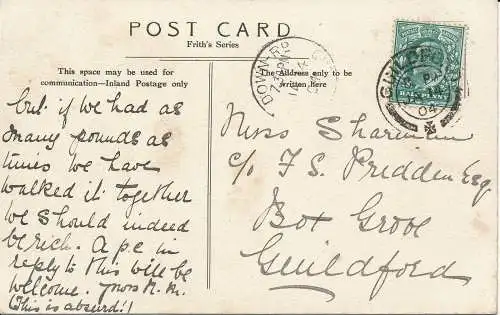 POST CARD
Frith's Series
This space may be used for
communication—Inland Postage only
The Address only to be
written here
GUILDFORD
04
HALFPENNY
but if we had as
many pounds as
times we have
walked it together
we should indeed
be rich. A p.c in
reply to this will be
welcome. Yrs M.M.
(This is absurd!!
Miss
c/o F S. Pridden Esq
Box Grove
Guildford